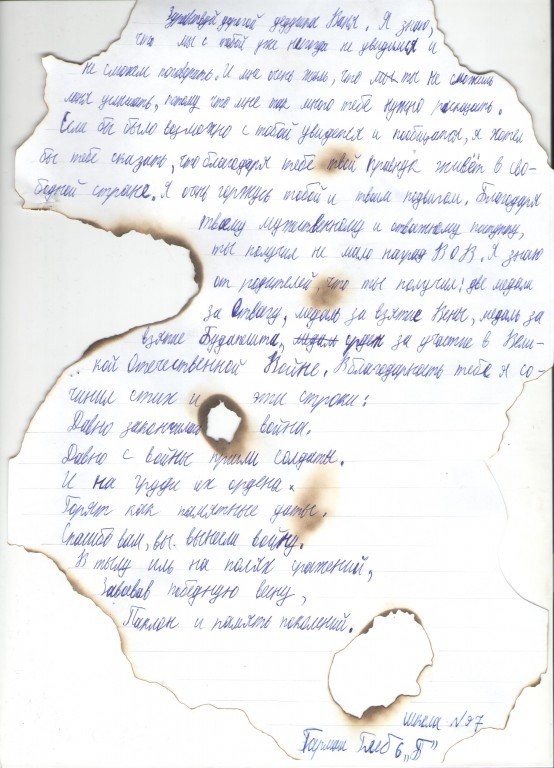 Здравствуй дорогой дедушка Ваня. Я знаю,
что мы с тобой уже никогда не увидимся и
не сможем поговорить. И мне очень жаль, что ты не сможешь
меня услышать, потому что мне так много тебе нужно рассказать.
Если бы было возможно с тобой увидеться и пообщаться, я хотел
бы тебе сказать, что благодаря тебе твой правнук живёт в сво-
бодной стране. Я очень горжусь тобой и твоим подвигом. Благодаря
твоему мужественному и отважному поступку,
ты получил не мало наград ВОВ. Я знаю
от родителей, что ты получил: две медали
за Отвагу, медаль за взятие Вены, медаль за
взятие Будапешта, орден за участие в Вели-
кой Отечественной Войне. В благодарность тебе я со-
чинил стих и эти строки:
Давно закончилась война.
Давно с войны пришли солдаты.
И на груди их ордена.
Горят как памятные даты.
Спасибо вам, вы вынесли войну.
В тылу иль на полях сражений,
Завоевав победную весну,
Паклон и память поколений.
школа №97
Глеб 6 „Б"